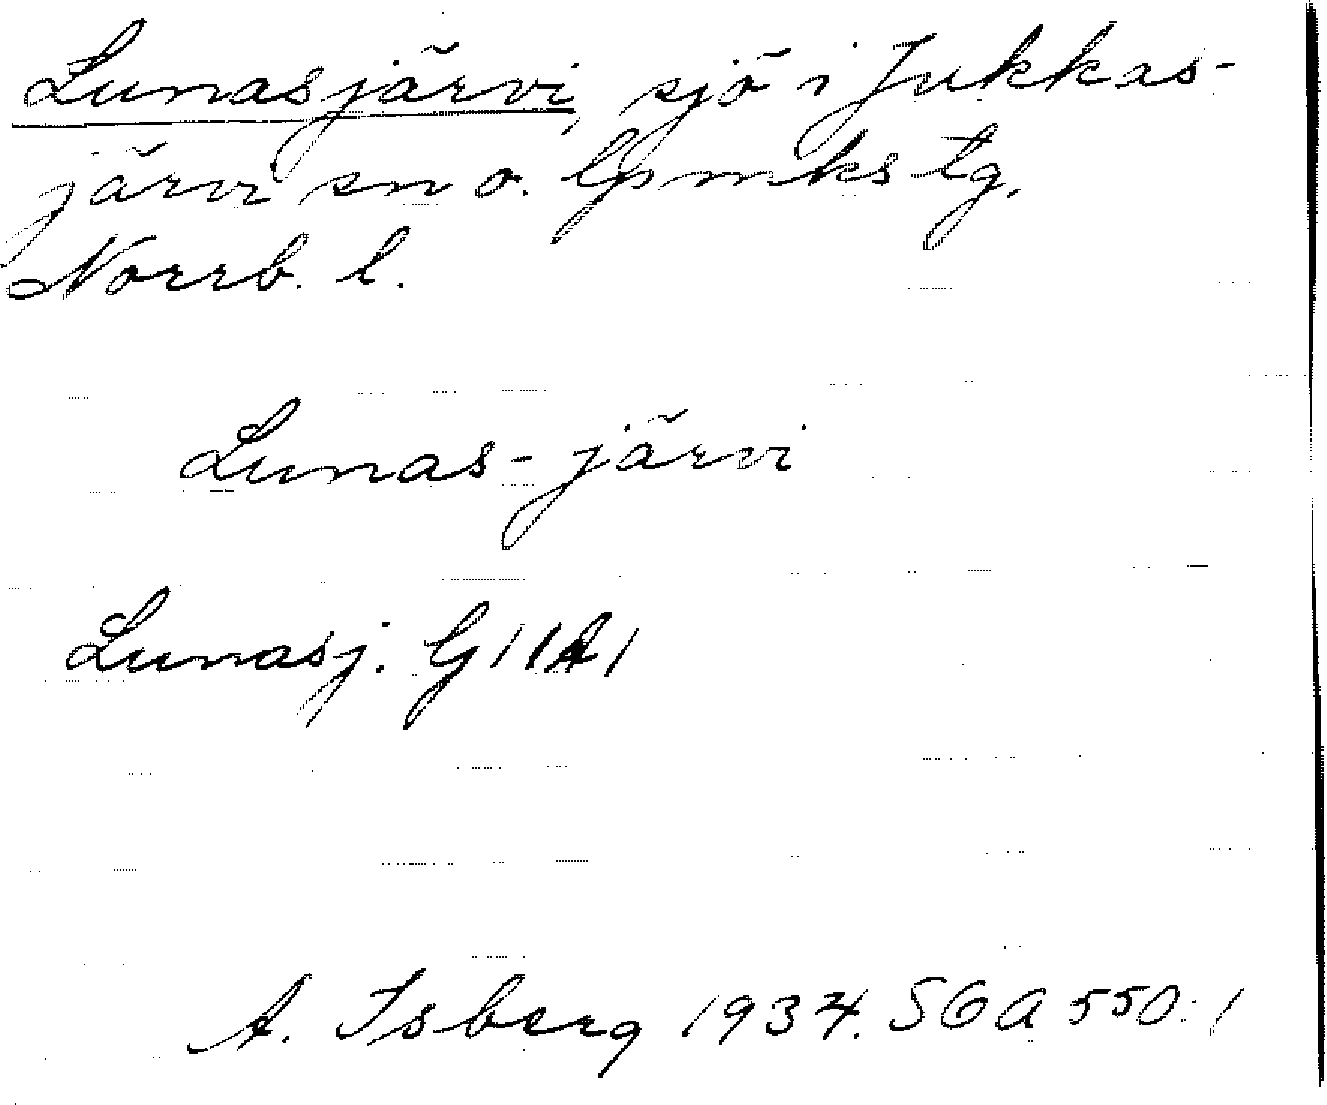 Lunasjärvi, sjö i Jukkas-
järvi sn o. lpmks tg,
Norrb. l.
Lunas-järvi
Lunasj. G11A1
A. Isberg 1934. SOA 550:1